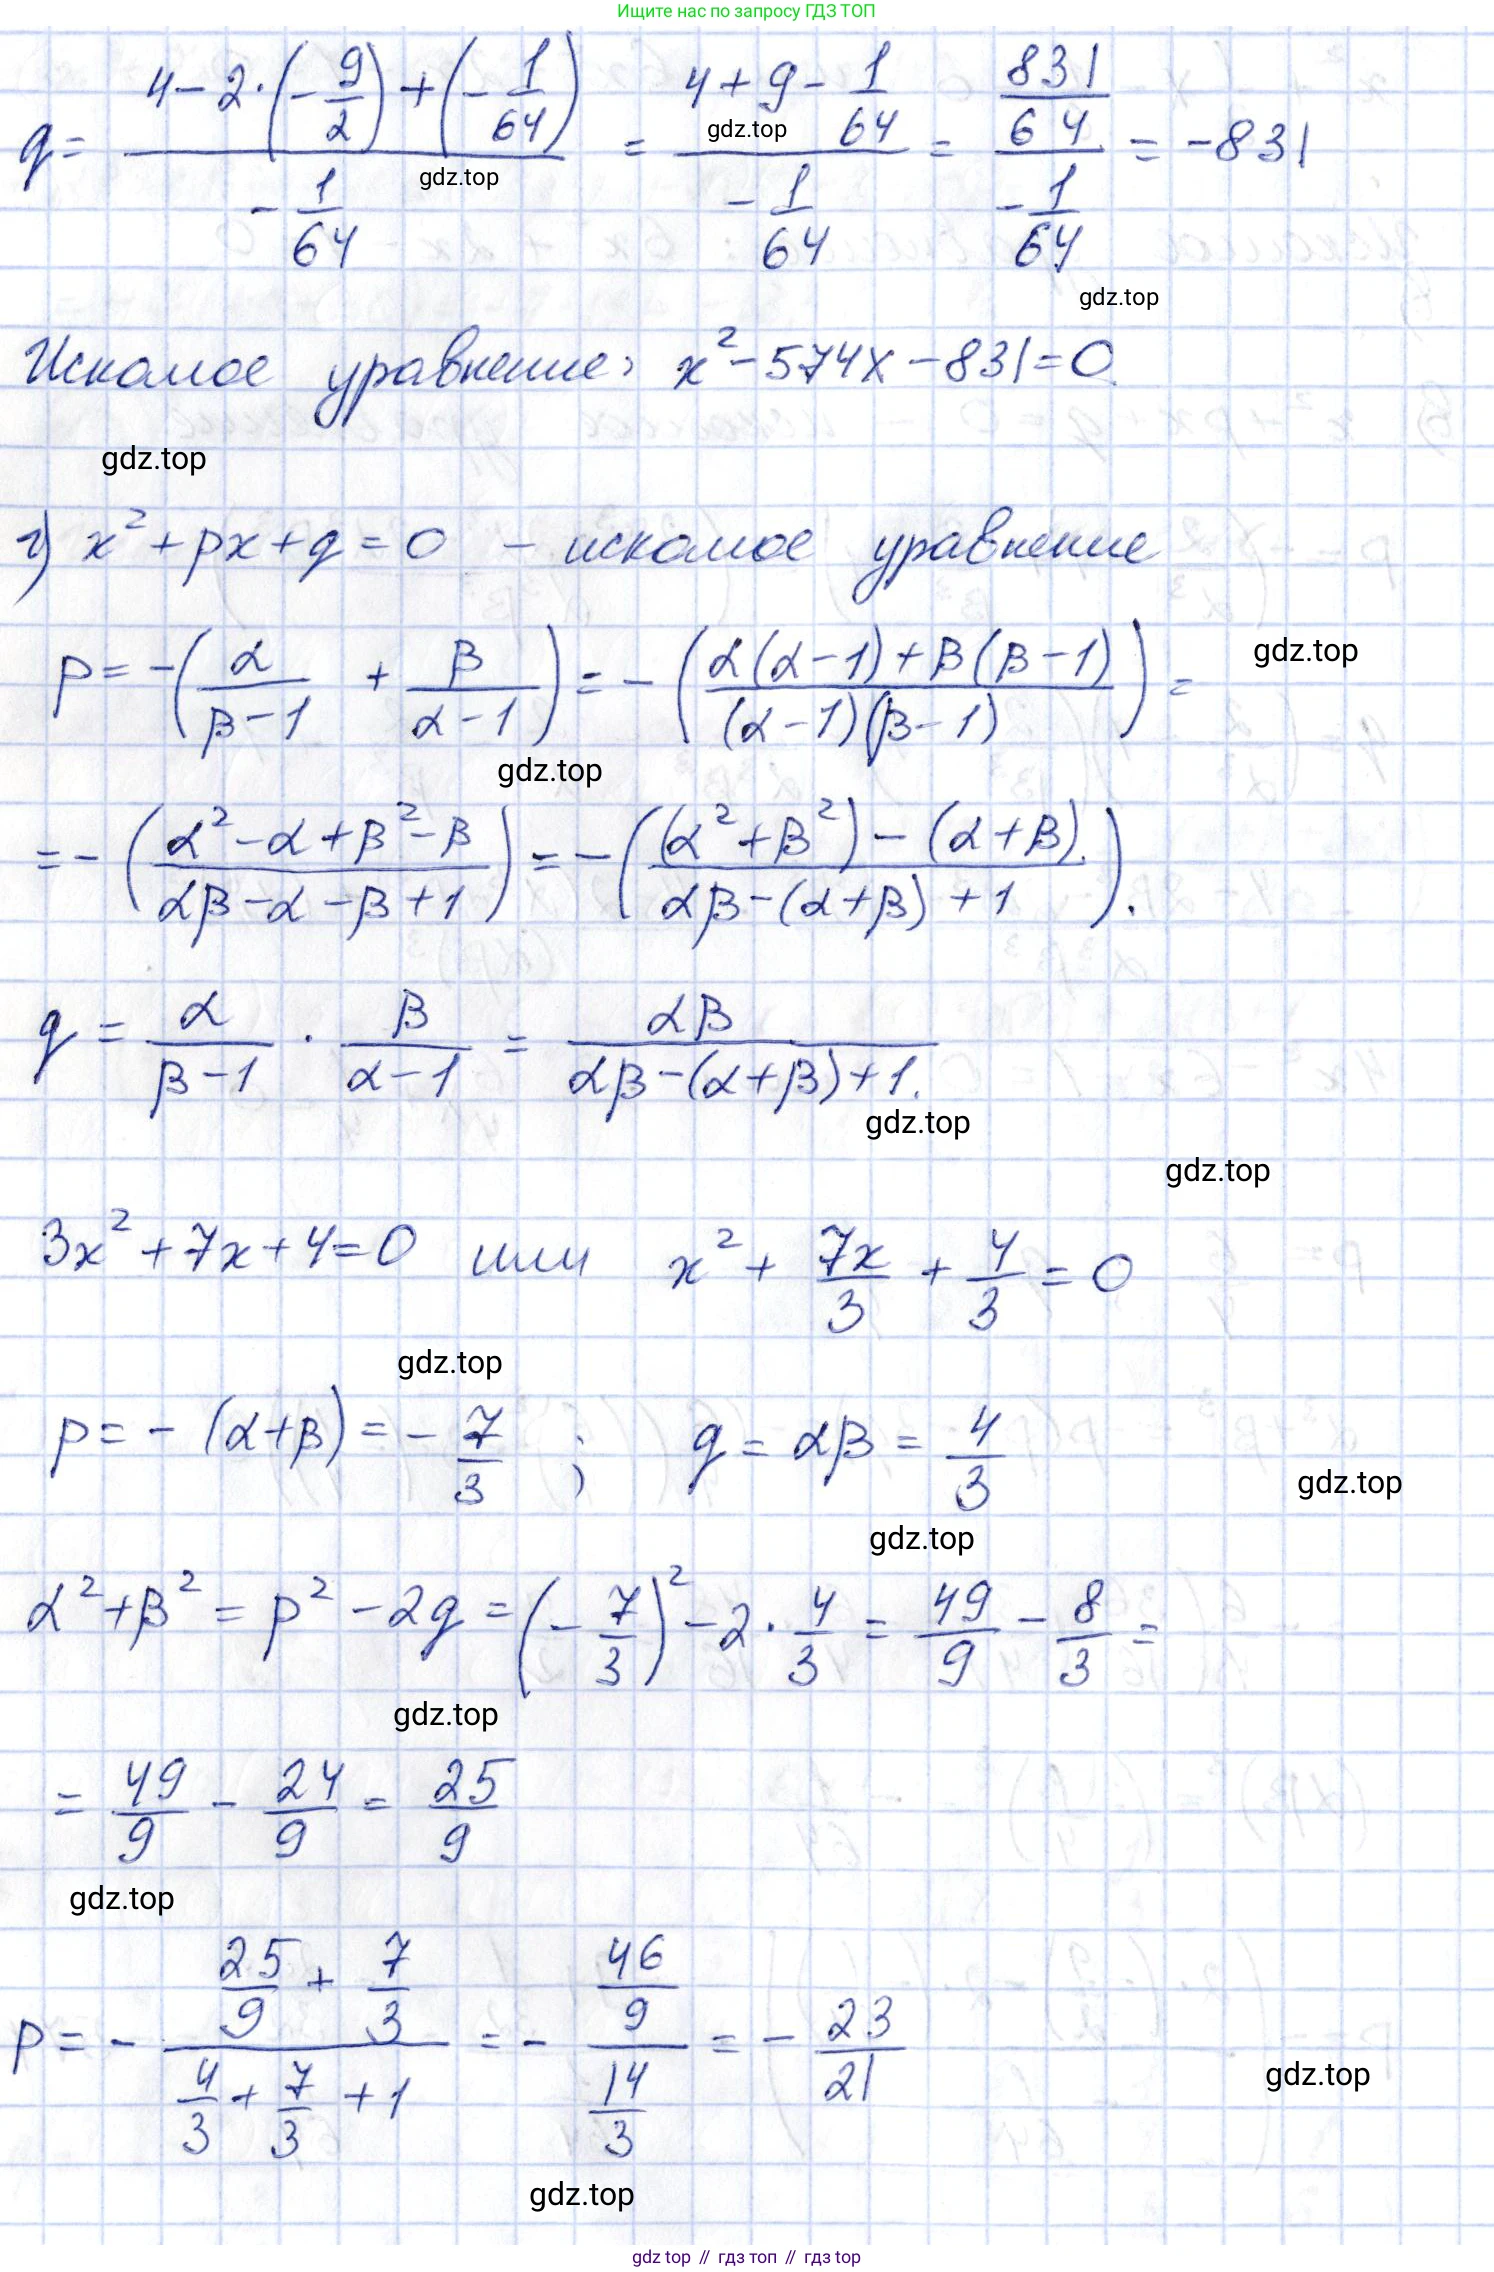 Ищите нас по запросу ГДЗ ТОП
q = (4 - 2·(-9/2) + (-1/64)) / (-1/64) = (4 + 9 - 1/64) / (-1/64) = (831/64) / (-1/64) = -831
gdz.top
gdz.top
gdz.top
Искомое уравнение: x² - 574x - 831 = 0
gdz.top
г) x² + px + q = 0 - искомое уравнение
p = -(α/(β-1) + β/(α-1)) = -((α(α-1) + β(β-1))/((α-1)(β-1))) =
gdz.top
gdz.top
= -((α² - α + β² - β)/(αβ - α - β + 1)) = -(((α² + β²) - (α + β))/(αβ - (α + β) + 1)).
q = α/(β-1) · β/(α-1) = αβ/(αβ - (α + β) + 1).
gdz.top
gdz.top
3x² + 7x + 4 = 0 или x² + 7x/3 + 4/3 = 0
gdz.top
p = -(α + β) = -7/3 ; q = αβ = 4/3
gdz.top
gdz.top
α² + β² = p² - 2q = (-7/3)² - 2·4/3 = 49/9 - 8/3 =
gdz.top
= 49/9 - 24/9 = 25/9
gdz.top
p = -(25/9 + 7/3)/(4/3 + 7/3 + 1) = -(46/9)/(14/3) = -23/21
gdz.top
gdz.top
gdz top // гдз топ // гдз top